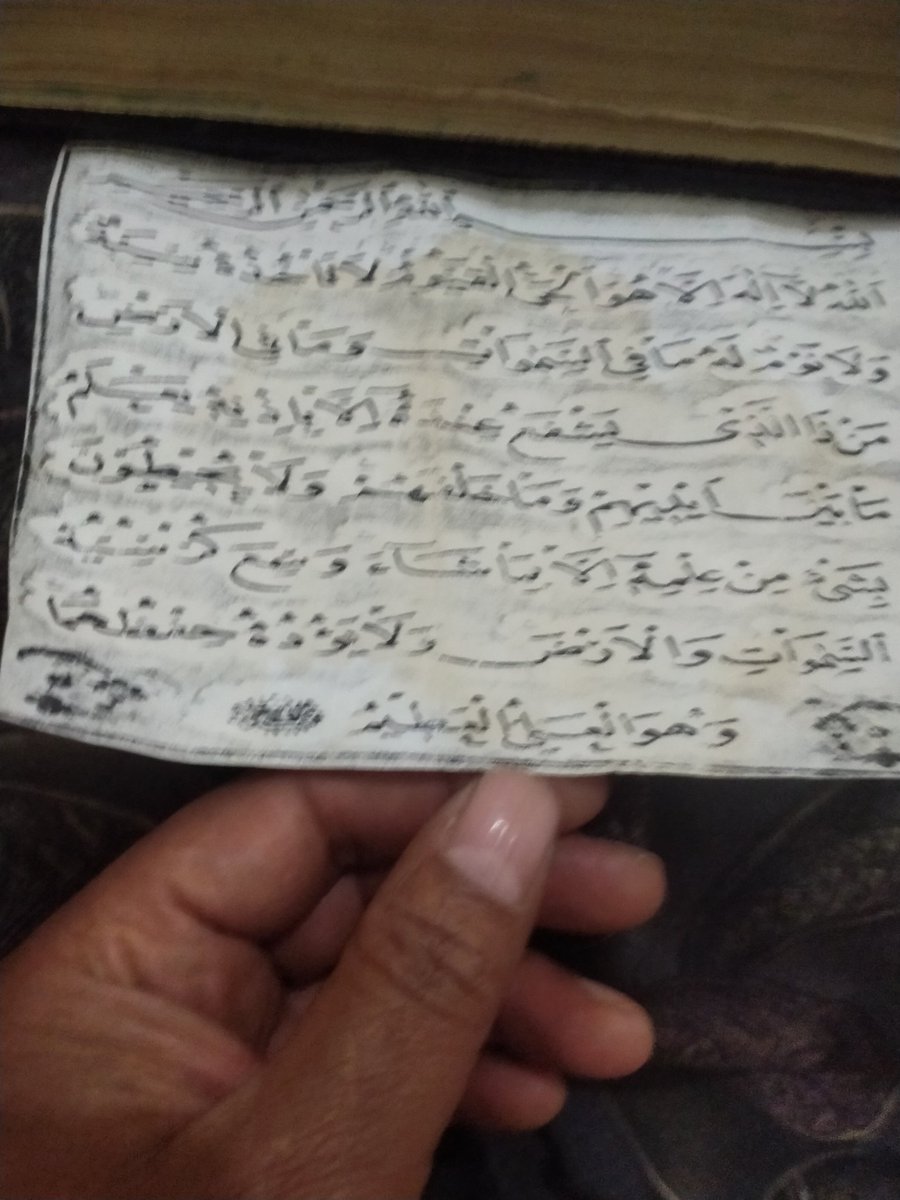 بِسْمِ اللهِ الرَّحْمٰنِ الرَّحِيْمِ
اَللهُ لَآ اِلٰهَ اِلَّا هُوَ اَلْحَيُّ الْقَيُّوْمُ لَا تَأْخُذُهُ سِنَةٌ
وَلَا نَوْمٌ لَهُ مَا فِي السَّمٰوَاتِ وَمَا فِي الْاَرْضِ
مَنْ ذَا الَّذِيْ يَشْفَعُ عِنْدَهُ اِلَّا بِاِذْنِهِ يَعْلَمُ
مَا بَيْنَ اَيْدِيْهِمْ وَمَا خَلْفَهُمْ وَلَا يُحِيْطُوْنَ
بِشَيْءٍ مِنْ عِلْمِهِ اِلَّا بِمَا شَاءَ وَسِعَ كُرْسِيُّهُ
السَّمٰوَاتِ وَالْاَرْضَ وَلَا يَؤُدُهُ حِفْظُهُمَا
وَهُوَ الْعَلِيُّ الْعَظِيْمُ